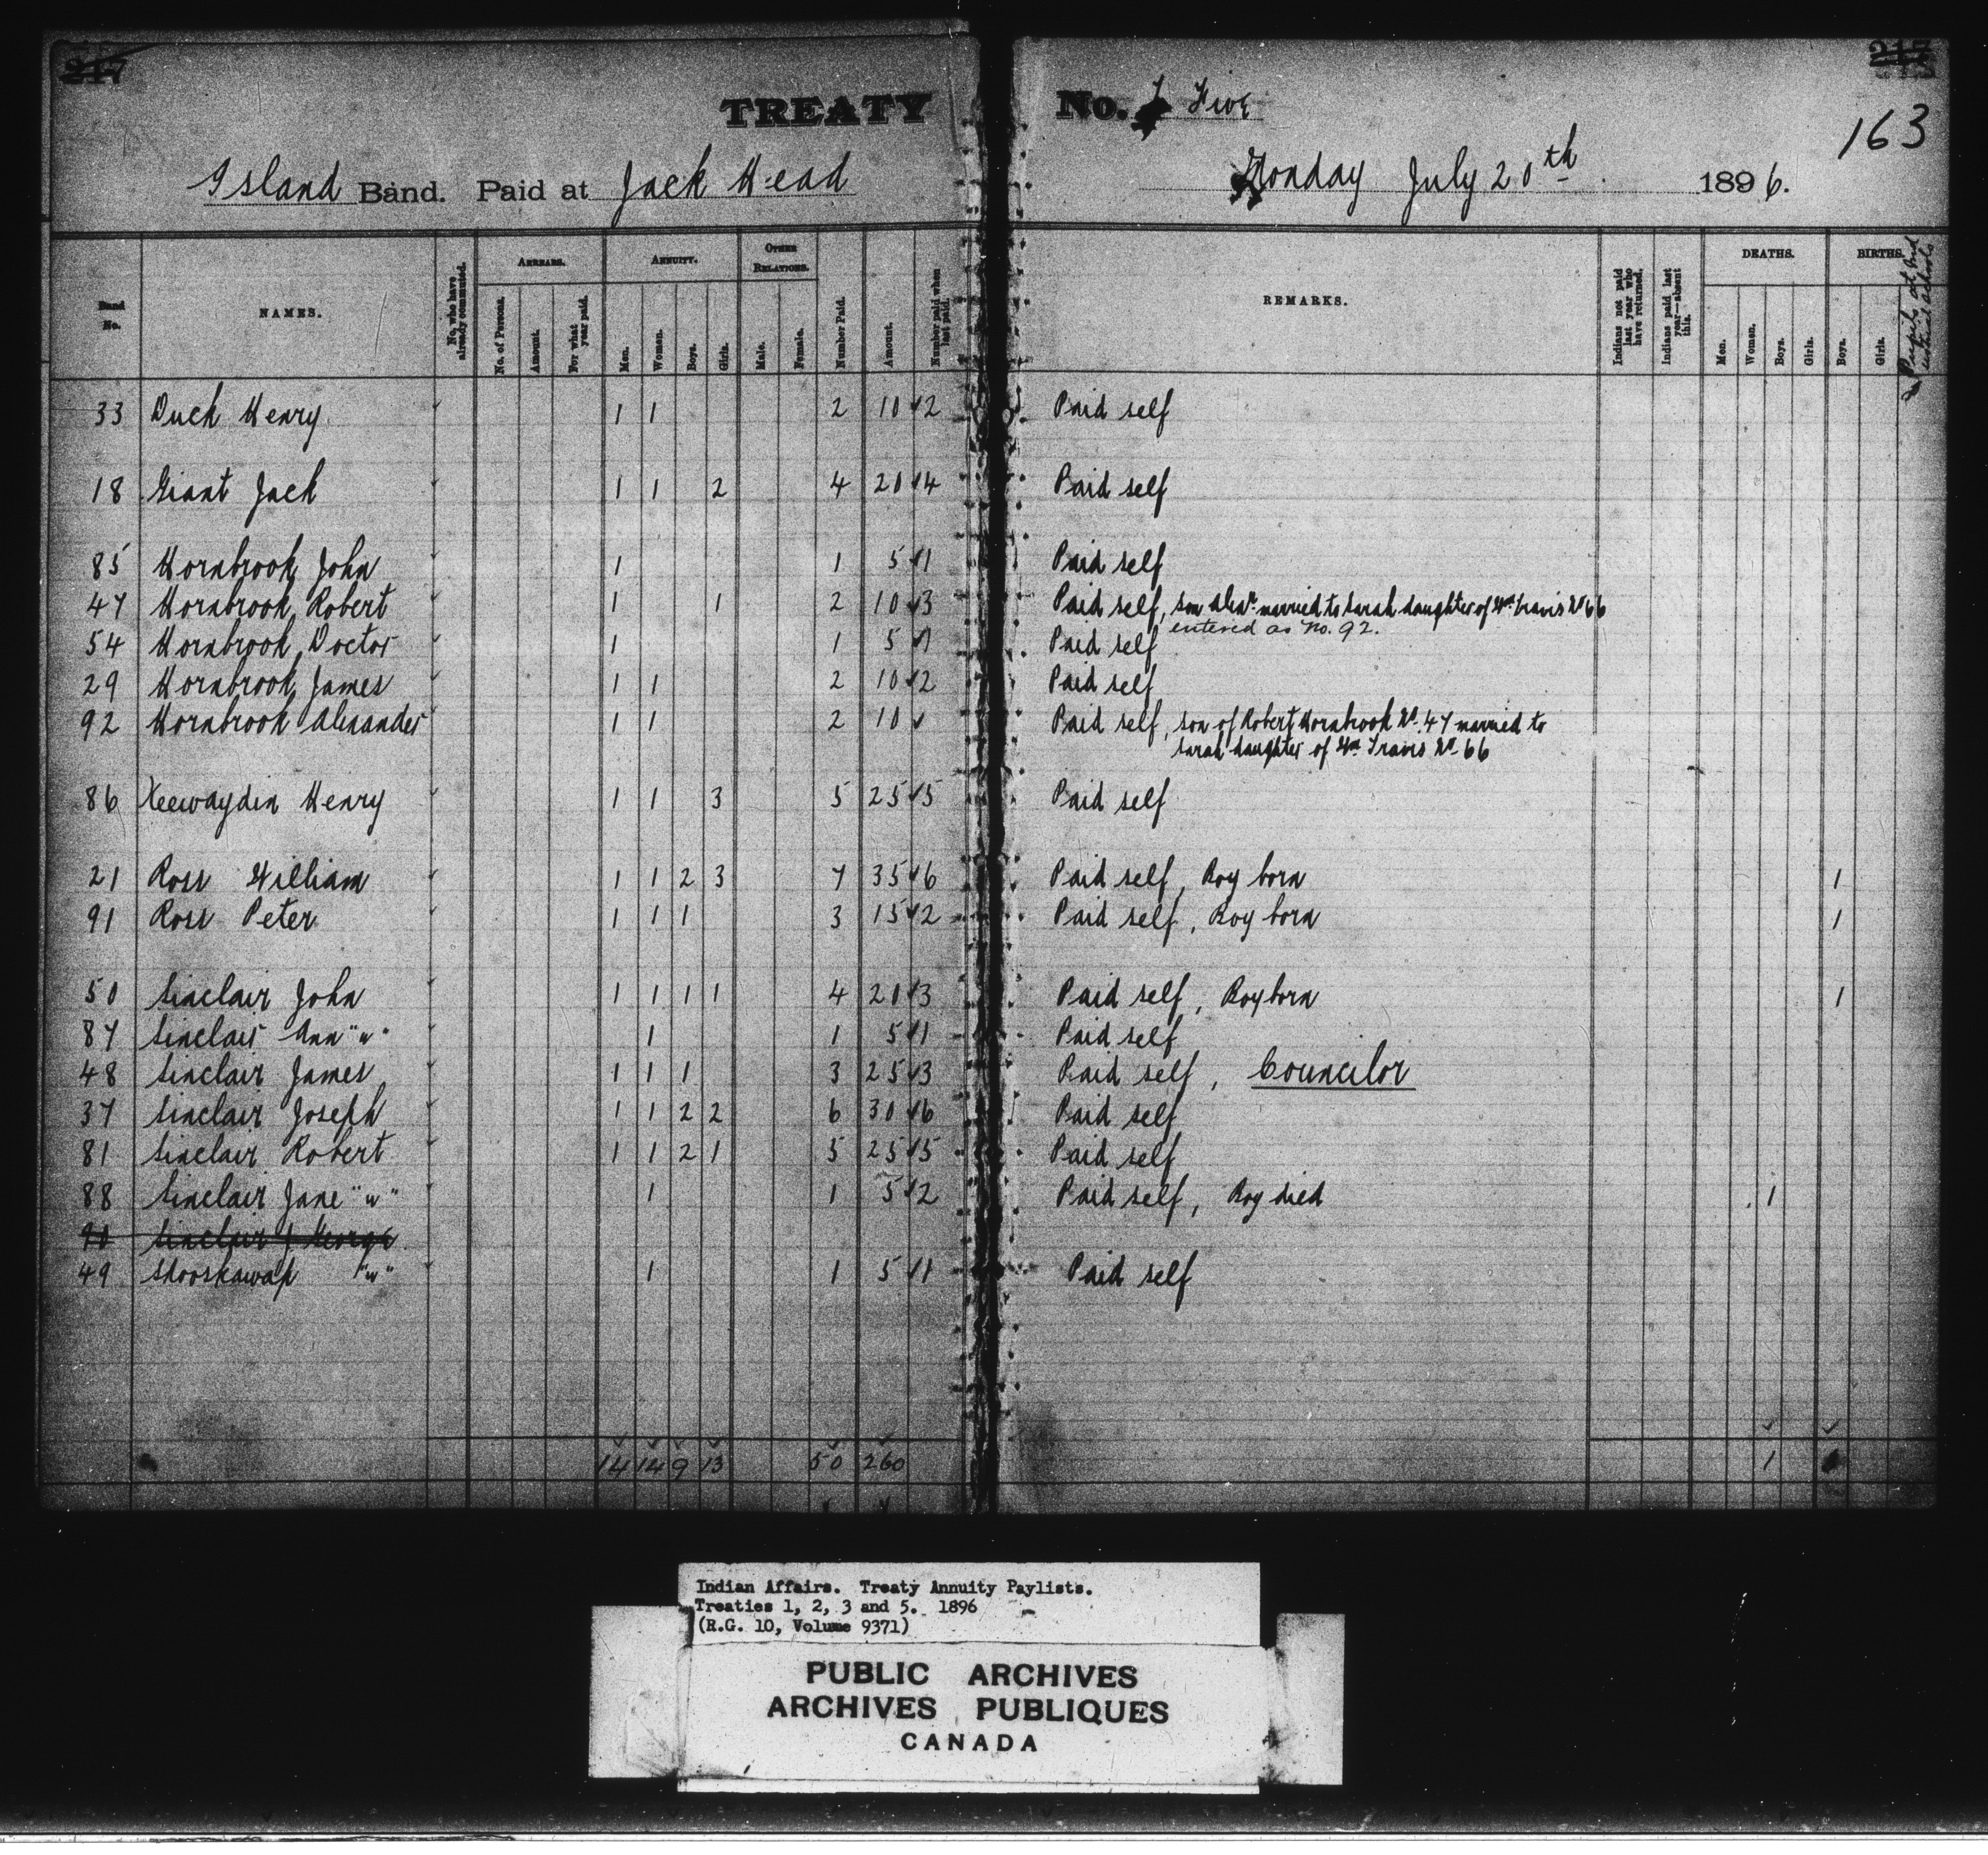 217 217
TREATY No. Five
163
Island Band. Paid at Jack Head Monday July 20th 1896.
Band No. NAMES. No. who have already commuted. ARREARS. No. of Persons. Amount. For what year paid. ANNUITY. Men. Women. Boys. Girls. OTHER RELATIONS. Male. Female. Number Paid. Amount. Number paid when last paid. REMARKS. Indians not paid last year who have returned. Indians paid last year—absent this. DEATHS. Men. Women. Boys. Girls. BIRTHS. Boys. Girls. Pupils at Ind industrial schools
33 Duck Henry 1 1 2 10 2 Paid self
18 Giant Jack 1 1 2 4 20 4 Paid self
85 Hornbrook John 1 1 5 1 Paid self
47 Hornbrook Robert 1 1 2 10 3 Paid self, son Alexr married to Sarah daughter of Wm Travis No 66
entered as No. 92.
54 Hornbrook Doctor 1 1 5 1 Paid self
29 Hornbrook James 1 1 2 10 2 Paid self
92 Hornbrook Alexander 1 1 2 10 Paid self, son of Robert Hornbrook No. 47 married to
Sarah daughter of Wm Travis No 66
86 Keewaydin Henry 1 1 3 5 25 5 Paid self
21 Ross William 1 1 2 3 7 35 6 Paid self, Boy born 1
91 Ross Peter 1 1 1 3 15 2 Paid self, Boy born 1
50 Sinclair John 1 1 1 1 4 20 3 Paid self, Boy born 1
87 Sinclair Ann "w" 1 1 5 1 Paid self
48 Sinclair James 1 1 1 3 25 3 Paid self, Councilor
37 Sinclair Joseph 1 1 2 2 6 30 6 Paid self
81 Sinclair Robert 1 1 2 1 5 25 5 Paid self
88 Sinclair Jane "w" 1 1 5 2 Paid self, Boy died 1
90 Sinclair J George
49 Shooskawap "w" 1 1 5 1 Paid self
14 14 9 13 50 260 1
Indian Affairs. Treaty Annuity Paylists.
Treaties 1, 2, 3 and 5. 1896
(R.G. 10, Volume 9371)
PUBLIC ARCHIVES
ARCHIVES PUBLIQUES
CANADA